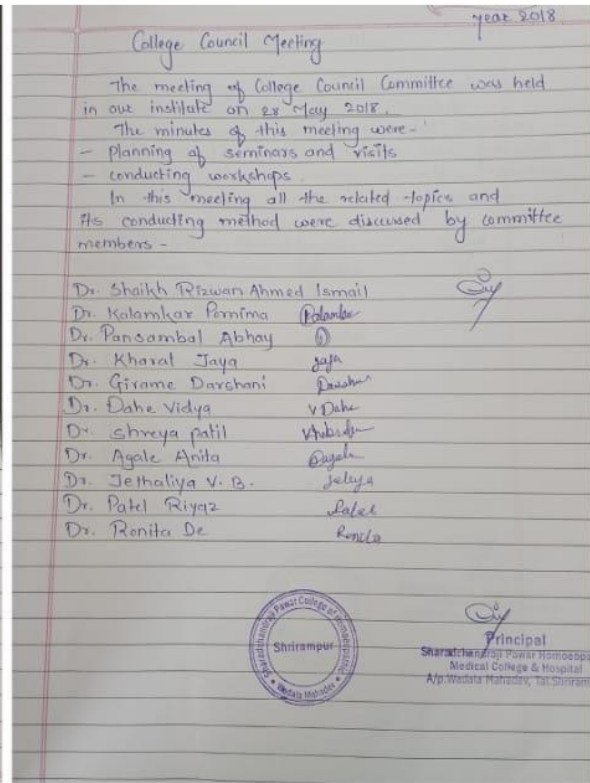 year 2018
College Council Meeting
The meeting of College Council Committee was held
in our institute on 28 May 2018.
The minutes of this meeting were-
- planning of seminars and visits
- conducting workshops.
In this meeting all the related topics and
its conducting method were discussed by committee
members -
Dr. Shaikh Rizwan Ahmed Ismail
Dr. Kalamkar Pornima
Dr. Pansambal Abhay
Dr. Kharat Jaya Jaya
Dr. Girame Darshani
Dr. Dahe Vidya V Dahe
Dr. shreya patil
Dr. Agale Anita
Dr. Jethaliya V. B.
Dr. Patel Riyaz Patel
Dr. Ronita De
Sharadchandraji Pawar College of Homoeopathy
Shrirampur
Wadala Mahadev
Principal
Sharadchandraji Pawar Homoeopa
Medical College & Hospital
A/p. Wadala Mahadev, Tal. Shriram